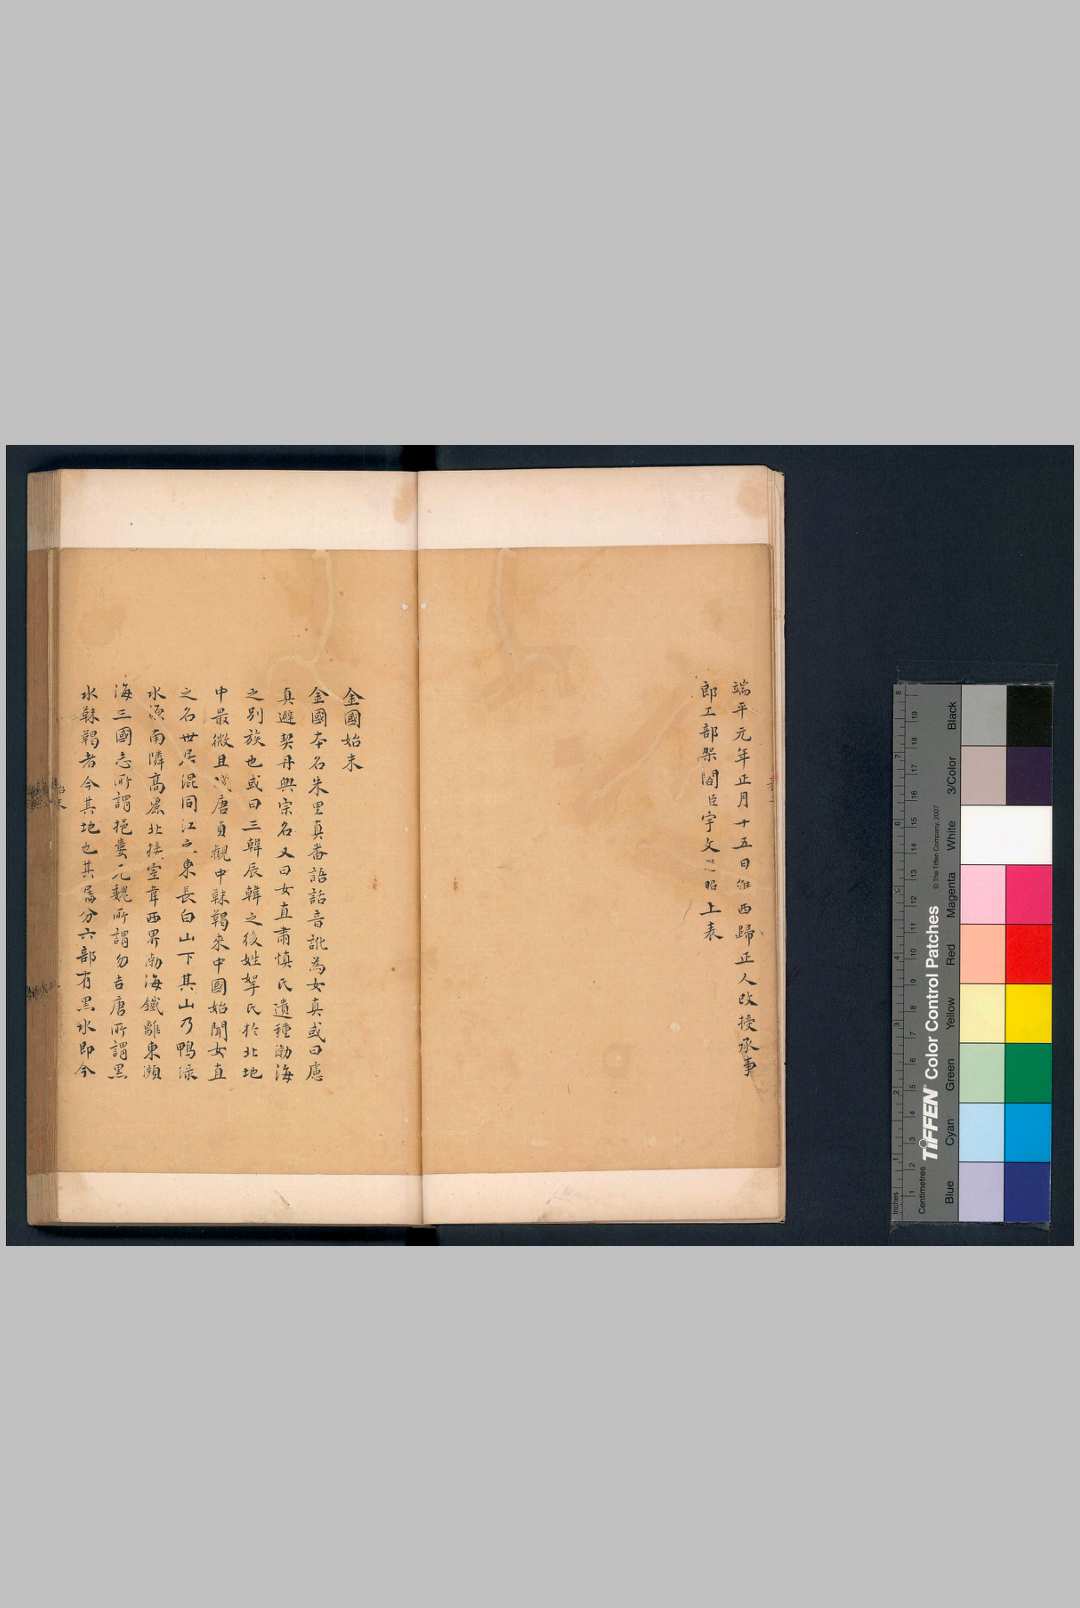 端平元年正月十五日淮西歸正人改授承事
郎工部架閣臣宇文懋昭上表
金國始末
金國本名朱里真番語訛音訛為女真或曰慮
真避契丹興宗名又曰女直肅慎氏遺種渤海
之別族也或曰三韓辰韓之後姓拏氏於北地
中最微且賤唐貞觀中靺鞨來中國始聞女直
之名世居混同江之東長白山下其山乃鴨綠
水源南隣高麗北接室韋西界渤海鐵離東瀕
海三國志所謂挹婁元魏所謂勿吉唐所謂黑
水靺鞨者今其地也其屬分六部有黑水即今
Inches
Centimetres
TIFFEN Color Control Patches
© The Tiffen Company, 2007
Blue
Cyan
Green
Yellow
Red
Magenta
White
3/Color
Black